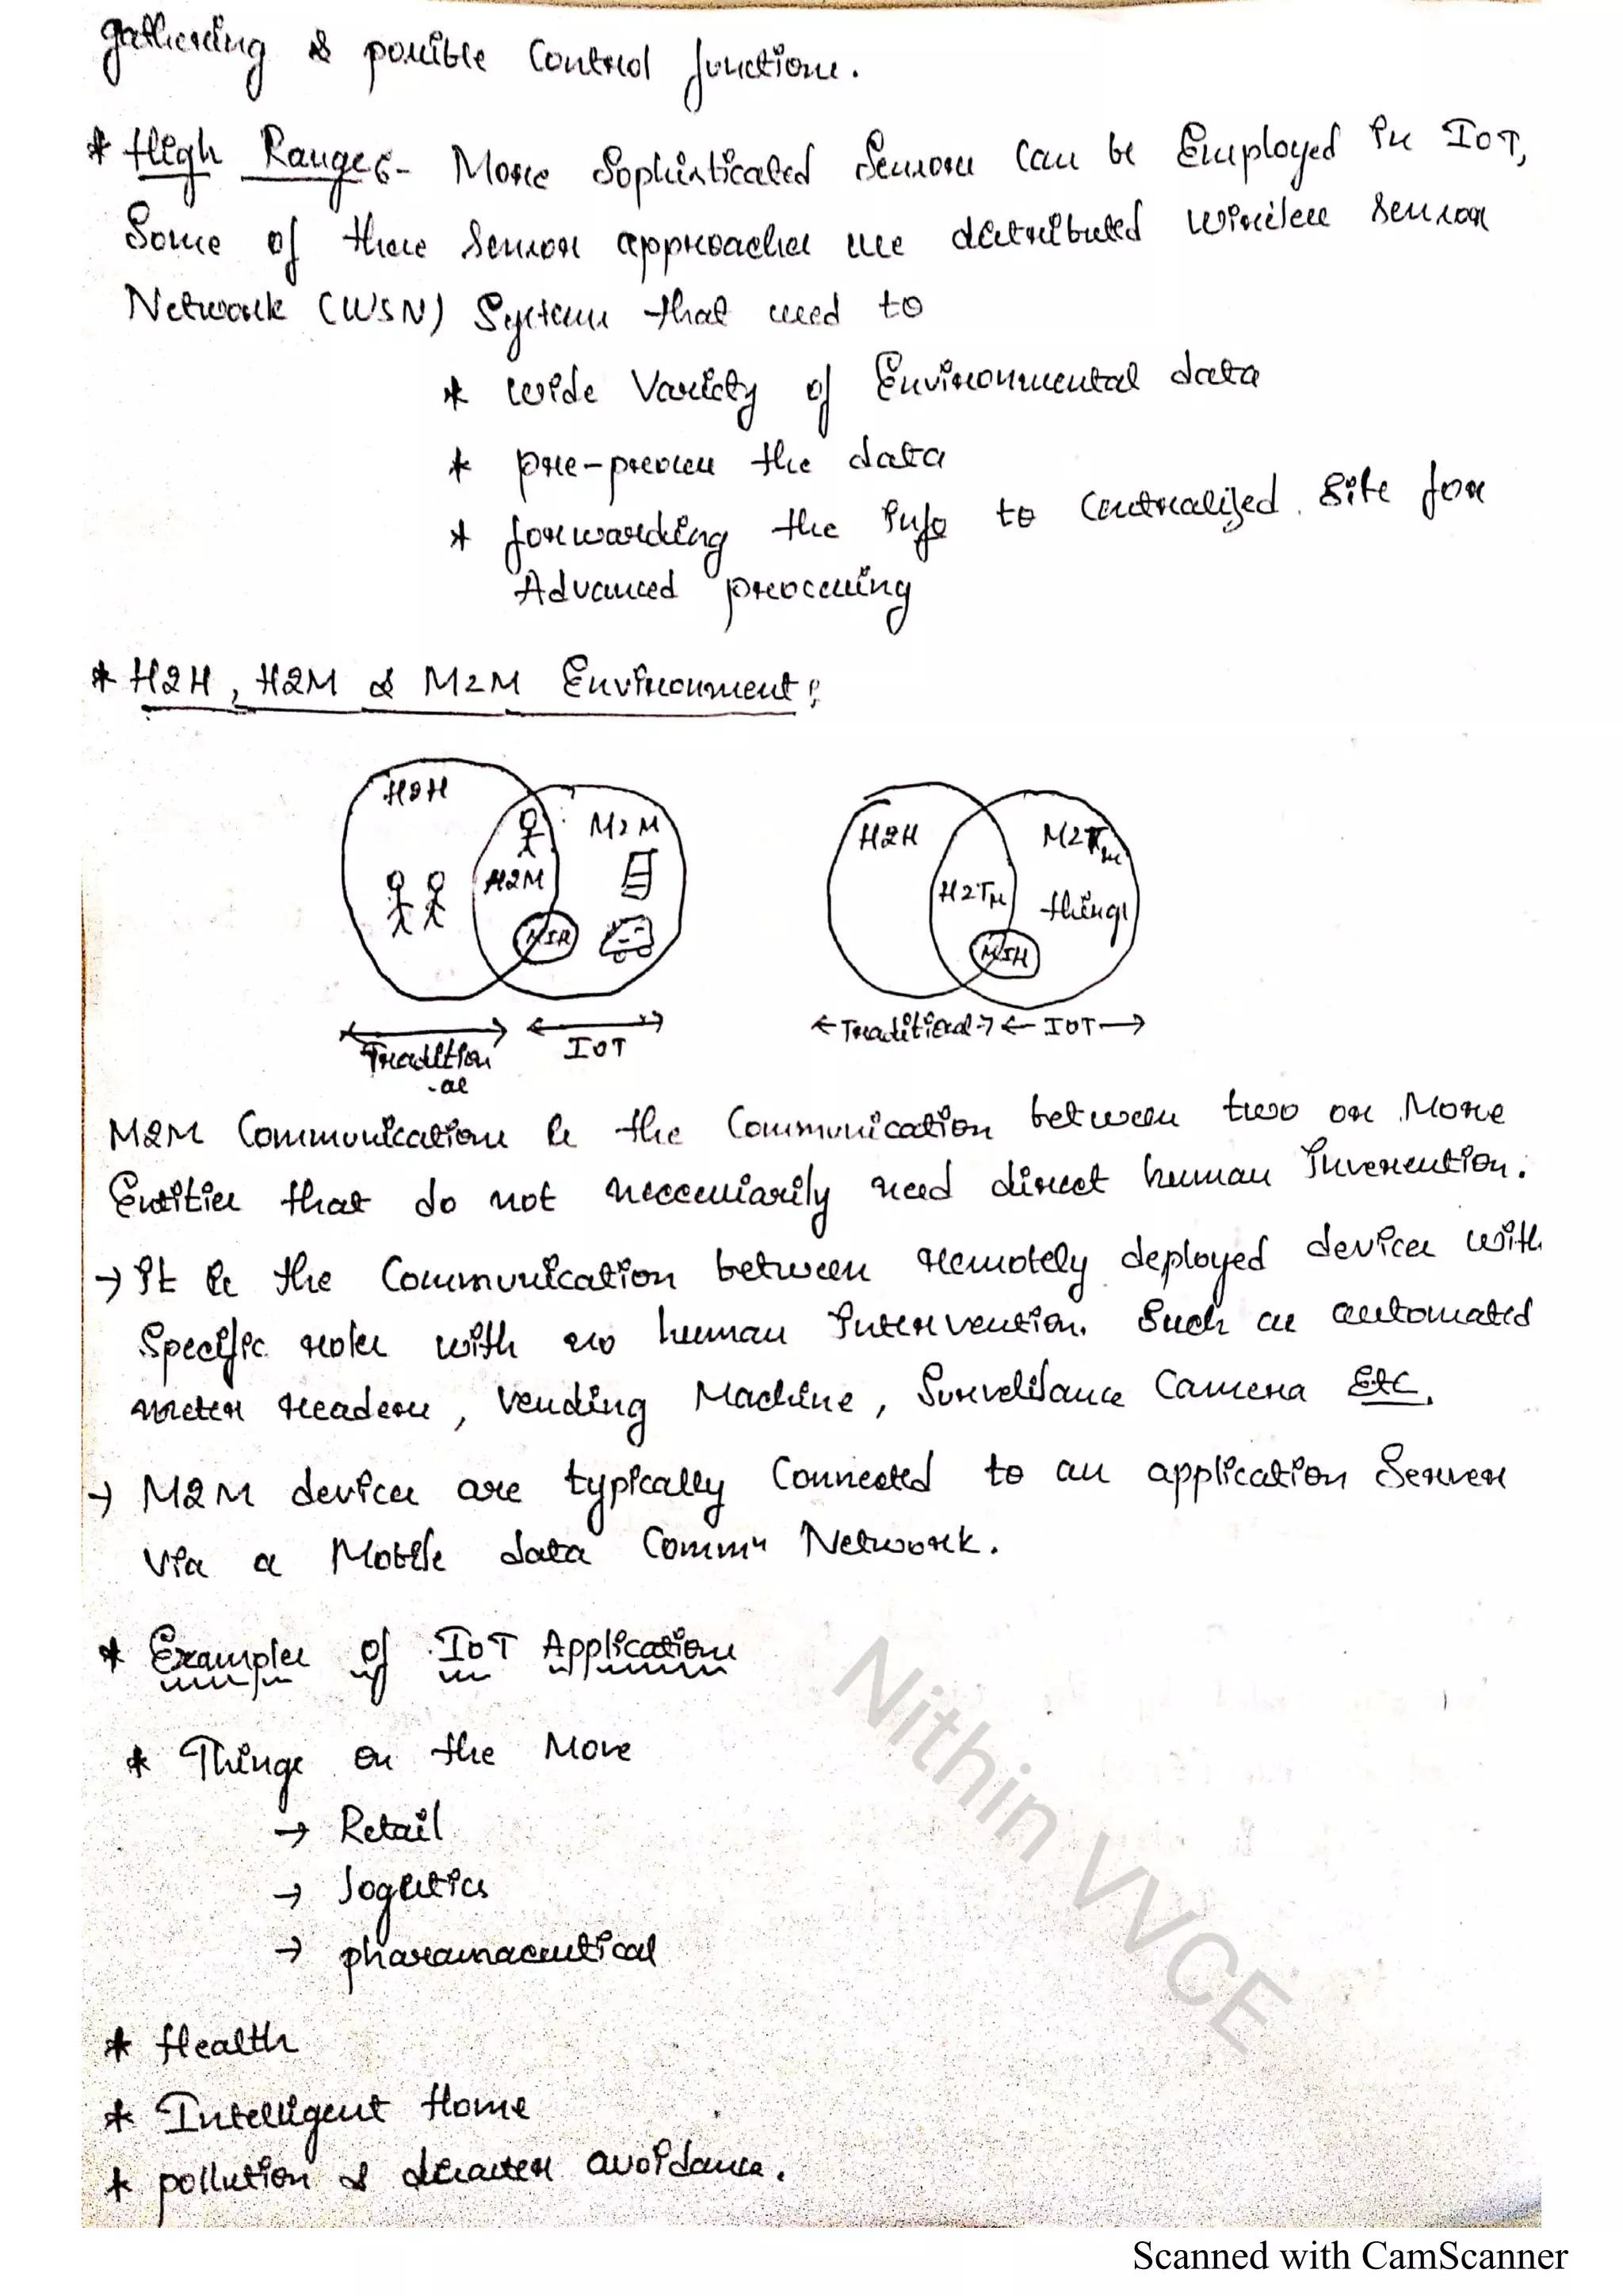 gathering & possible Control functions.
* High Range :- More Sophisticated Sensors Can be Employed in IoT,
Some of these Sensor approaches use distributed wireless sensor
Network (WSN) Systems that used to
* wide Variety of Environmental data
* pre-process the data
* forwarding the info to Centralized site for
Advanced processing
* H2H, H2M & M2M Environment:
H2H
M2M
H2M
MIH
Tradition
-al
IOT
H2H
M2Tm
H2Tm
things
MIH
←Traditional→ ← IOT →
M2M Communications is the Communication between two or More
Entities that do not neccessiarily need direct human Invervention.
→ It is the Communication between remotely deployed devices with
Specific roles with no human Intervention. Such as automated
meter readers, Vending Machine, Survelisance Camera Etc.
→ M2M devices are typically Connected to an application Server
via a Mobile data Commn Network.
* Examples of IoT Applications
* Things on the Move
→ Retail
→ logistics
→ pharamaceutical
* Health
* Intelligent Home
* pollution & disaster avoidance.
Nithin VVCE
Scanned with CamScanner